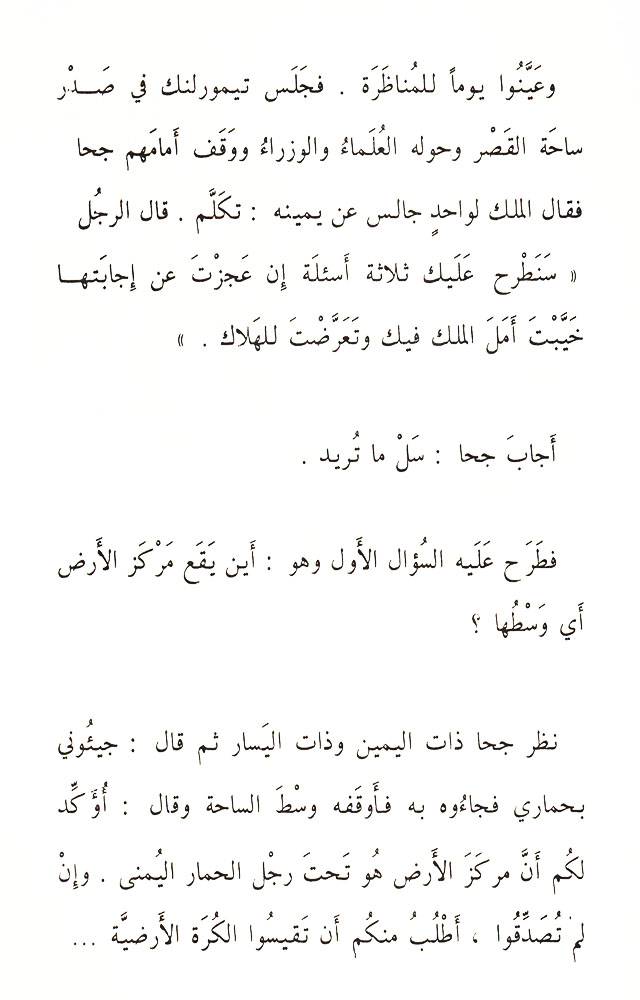 وعَيَّنُوا يوماً للمُناظَرَة . فجَلَس تيمورلنك في صَـدْر
ساحَة القَصْر وحوله العُلَماءُ والوزراءُ ووَقَف أَمامَهم جحا
فقال الملك لواحدٍ جالس عن يمينه : تكَلَّم . قال الرجُل
« سَنَطْرح عَلَيك ثلاثة أَسئلَة إِن عَجزْتَ عن إِجابَتهـا
خَيَّبْتَ أَمَلَ الملك فيك وتَعَرَّضْتَ للهَلاك . »
أَجابَ جحا : سَلْ ما تُريد .
فطَرَح عَلَيه السُؤال الأَول وهو : أَين يَقَع مَرْكَز الأَرض
أَي وَسْطُها ؟
نظر جحا ذات اليمين وذات اليَسار ثم قال : جيئُوني
بحماري فجاءُوه به فأَوقَفه وسْطَ الساحة وقال : أُؤَكِّد
لكُم أَنَّ مركَزَ الأَرض هُو تَحتَ رجْل الحمار اليُمنى . وإِنْ
لم تُصَدِّقُوا ، أَطْلُبُ منكُم أَن تَقيسُوا الكُرَة الأَرضيَّة ...